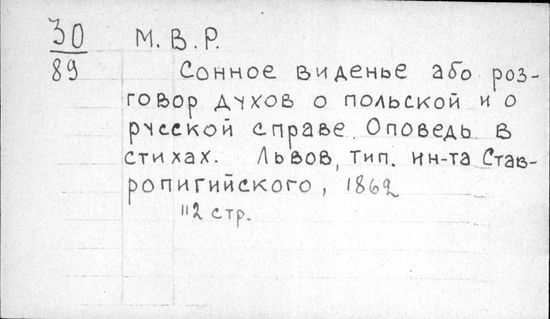 30 М. В. Р.
89 Сонное виденье або роз-
говор духов о польской и о
русской справе. Оповедь в
стихах. Львов, тип. ин-та Став-
ропигийского, 1862
112 стр.